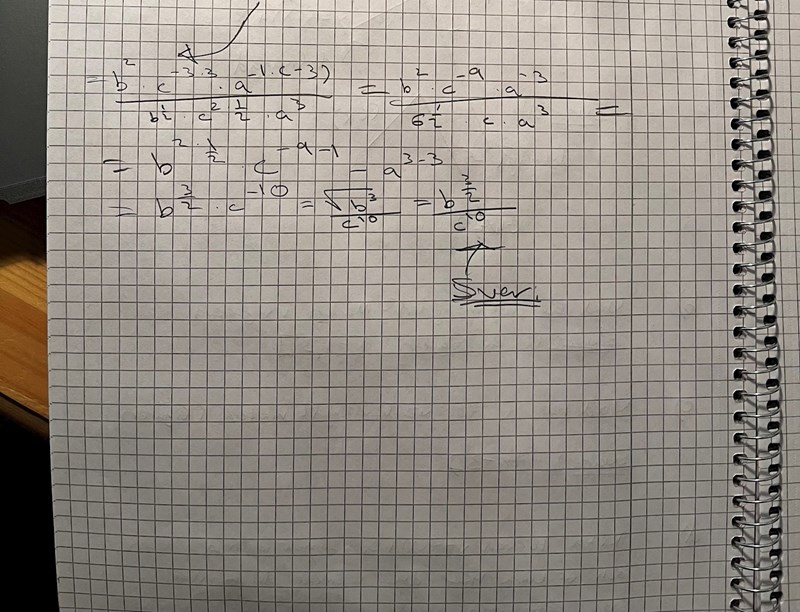 = b² · c⁻³·³ · a⁻¹·(-³) / b^½ · c²·^½ · a³ = b² · c⁻⁹ · a⁻³ / b^½ · c · a³ =
= b²·^½ · c⁻⁹⁻¹ - a³⁻³
= b^3/2 · c⁻¹⁰ = √b³ / c¹⁰ = b^3/2 / c¹⁰
Svar.